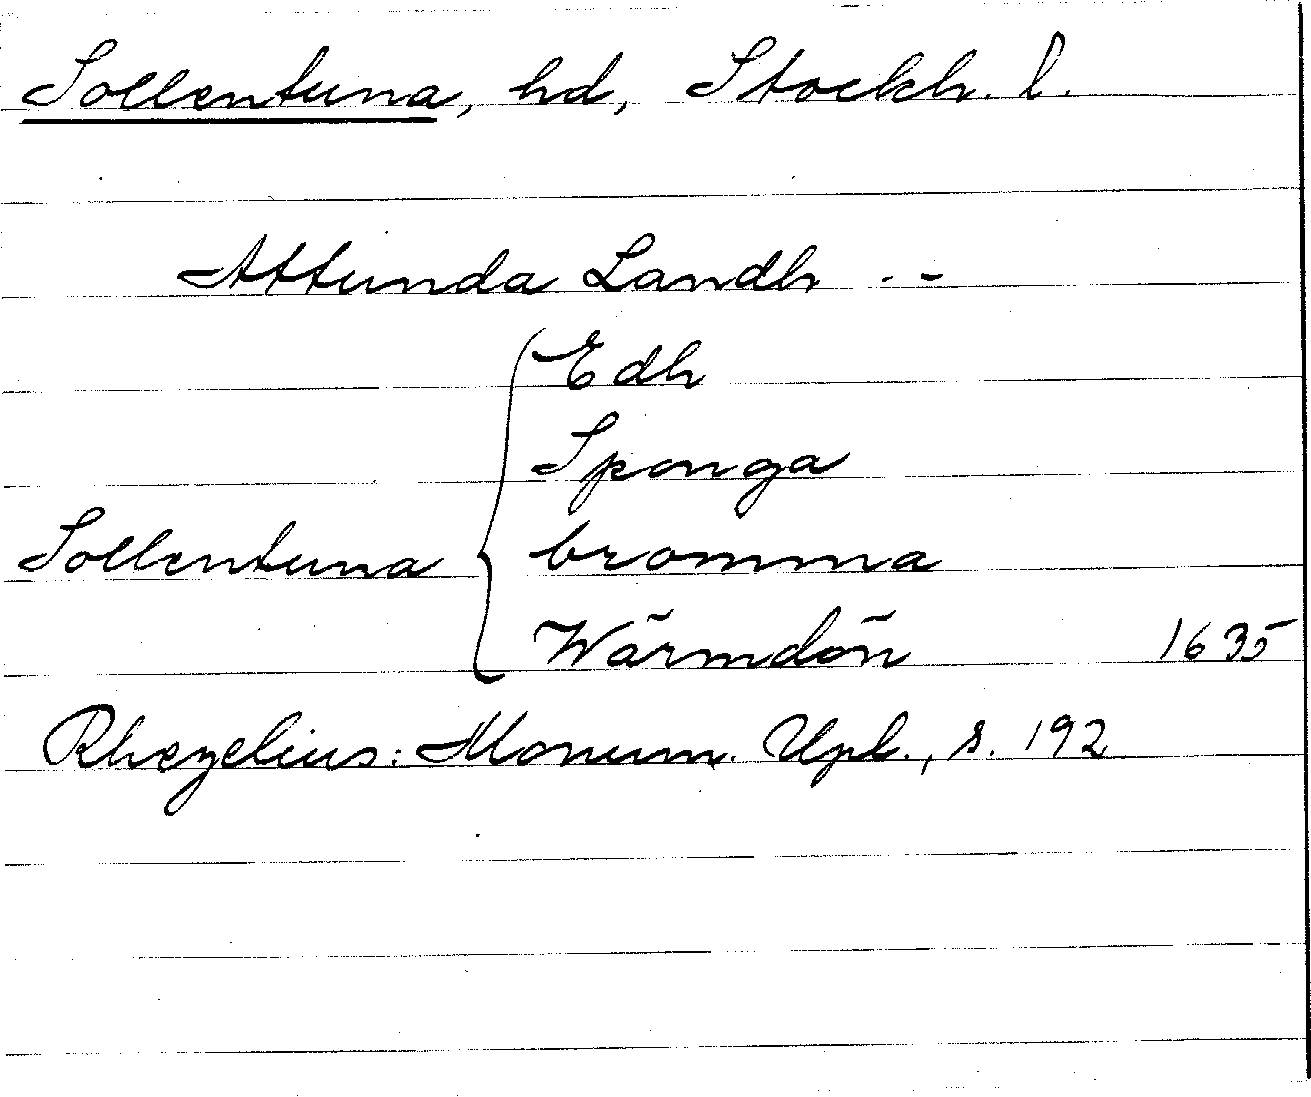 Sollentuna, hd, Stockh. l.
Attunda Landh - -
Edh
Sponga
Sollentuna { bromma
Wārmdōn 1635
Rhezelius: Monum. Upl., s. 192